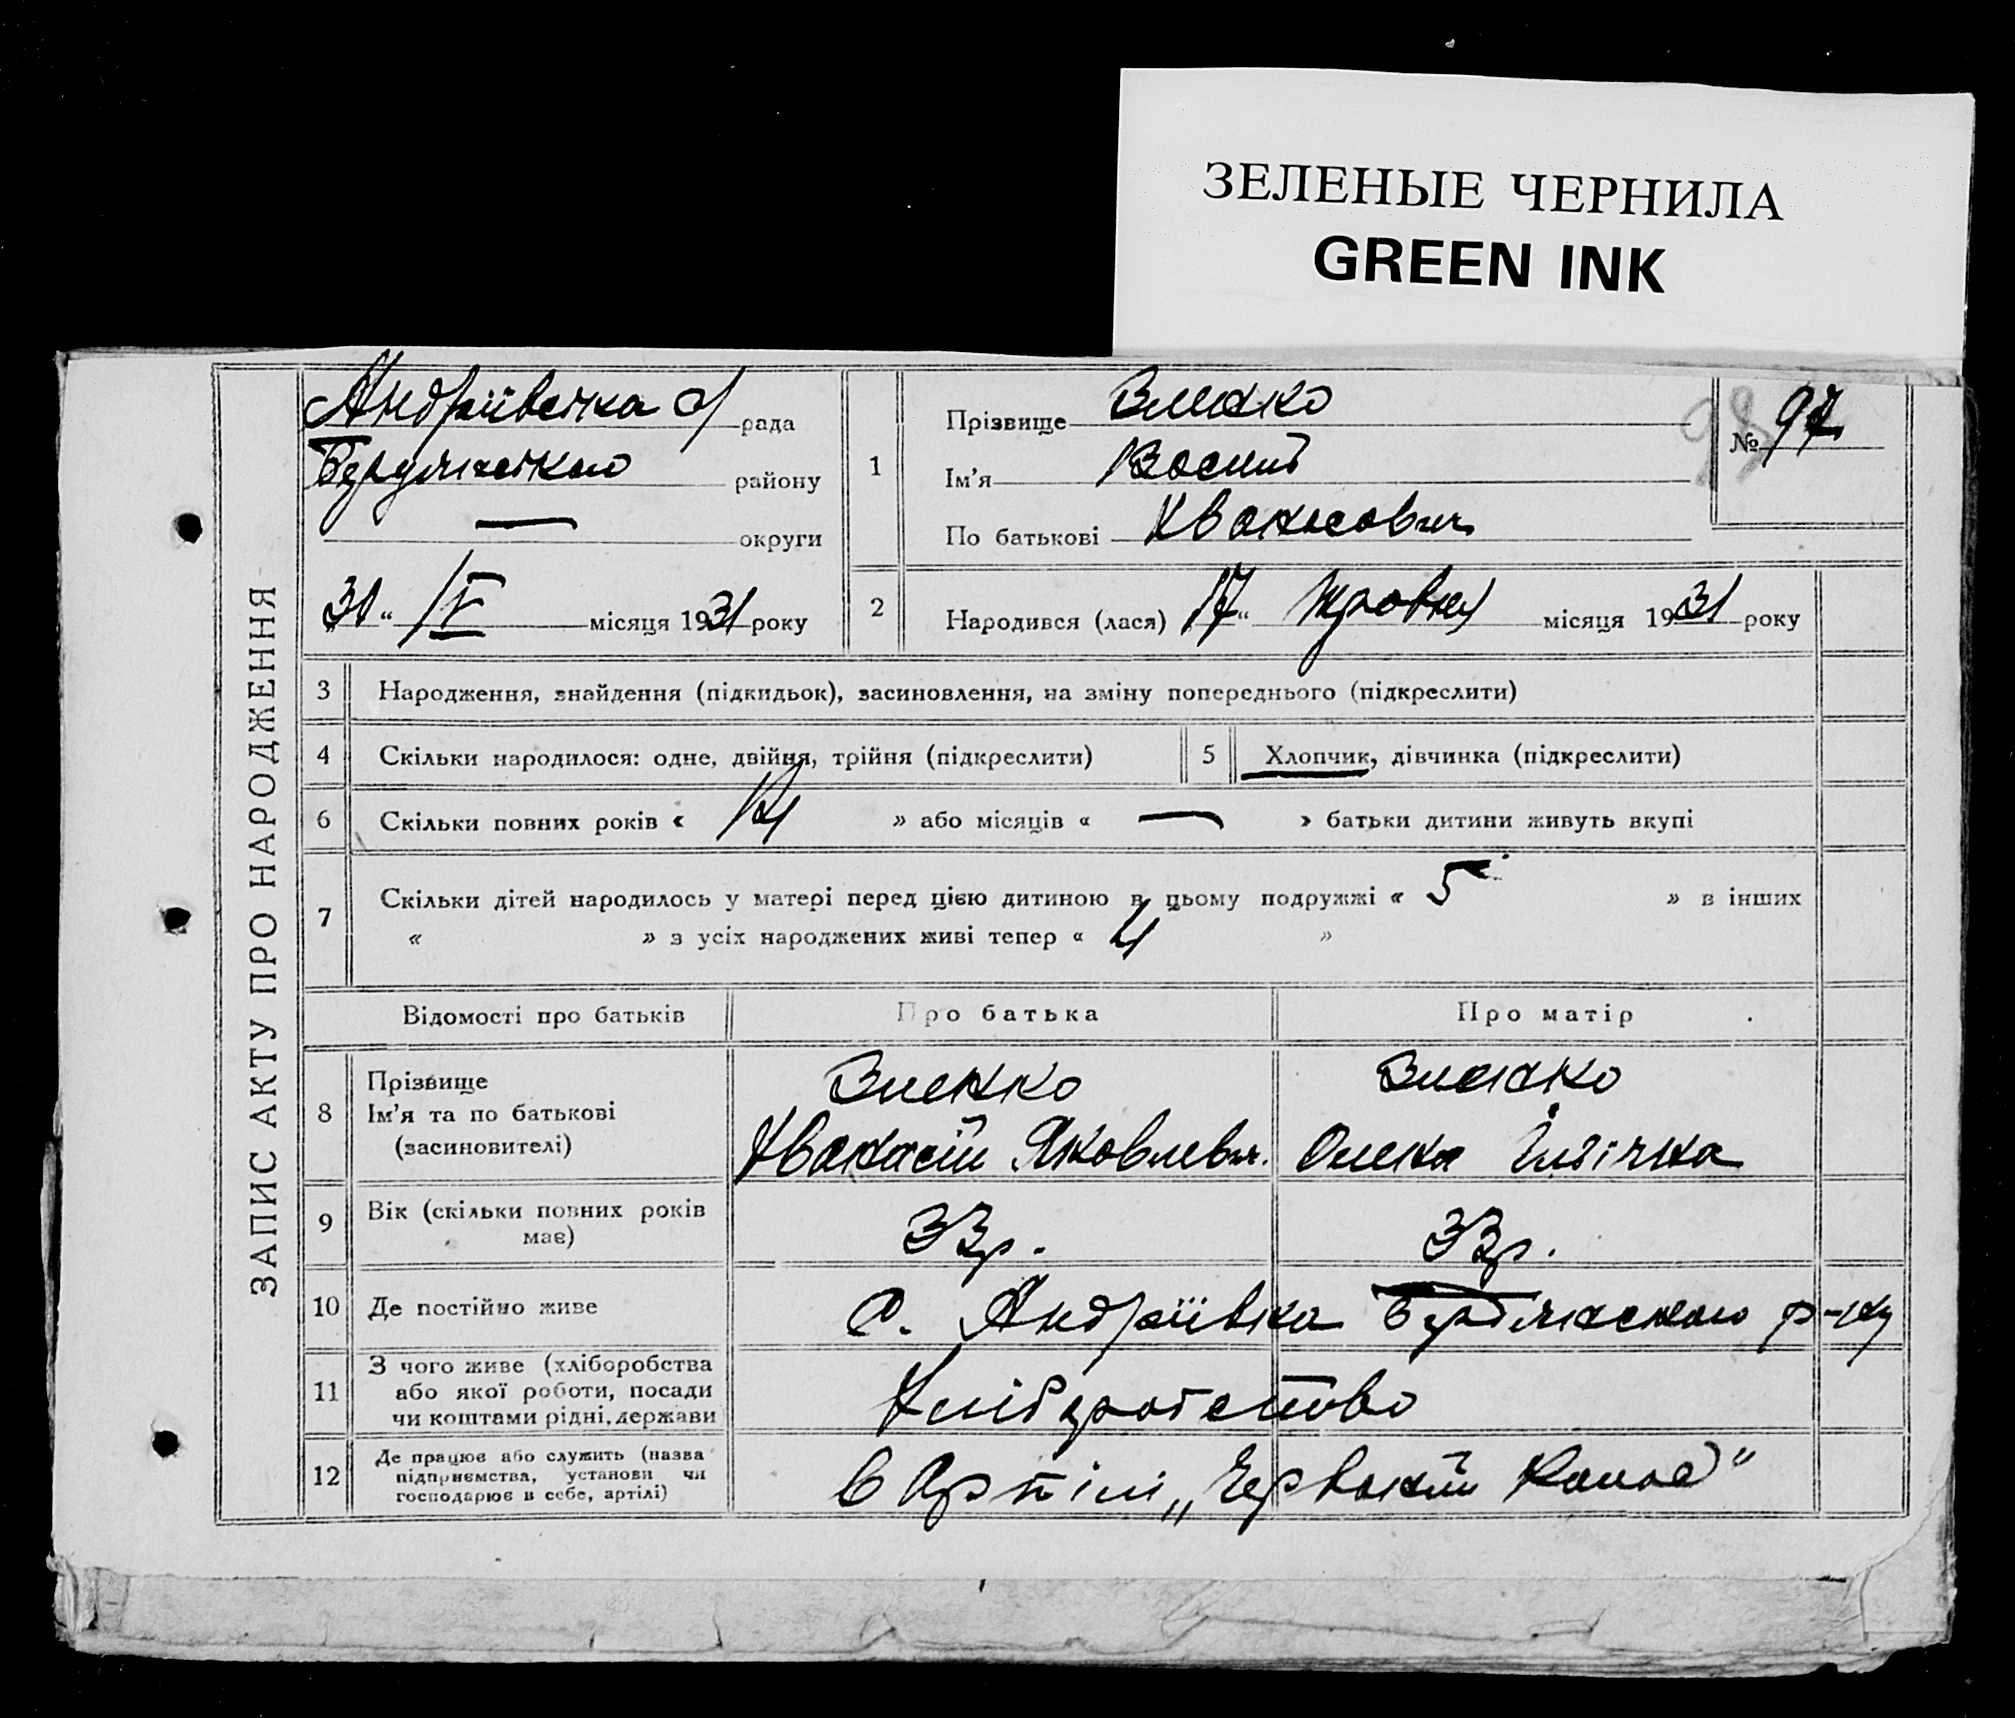 ЗЕЛЕНЫЕ ЧЕРНИЛА
GREEN INK
ЗАПИС АКТУ ПРО НАРОДЖЕННЯ
Андріївська с/рада
Бердянського району
— округи
31 " V місяця 1931 року
№ 97
98
1 Прізвище
Ім'я
По батькові
2 Народився (лася) 17 " травня місяця 1931 року
3 Народження, знайдення (підкидьок), засиновлення, на зміну попереднього (підкреслити)
4 Скільки народилося: одне, двійня, трійня (підкреслити)
5 Хлопчик, дівчинка (підкреслити)
6 Скільки повних років « » або місяців « — » батьки дитини живуть вкупі
7 Скільки дітей народилось у матері перед цією дитиною в цьому подружжі « 5 » в інших
« » з усіх народжених живі тепер « 4 »
Відомості про батьків Про батька Про матір
8 Прізвище
Ім'я та по батькові
(засиновителі)
Яковлевич. Олена
9 Вік (скільки повних років
має)
33 р. 33 р.
10 Де постійно живе с. Андріївка Бердянського р-ну
11 З чого живе (хліборобства
або якої роботи, посади
чи коштами рідні, держави
Хліборобство
12 Де працює або служить (назва
підприємства, установи чи
господарює в себе, артілі)
в Артілі „Червоний Колос"